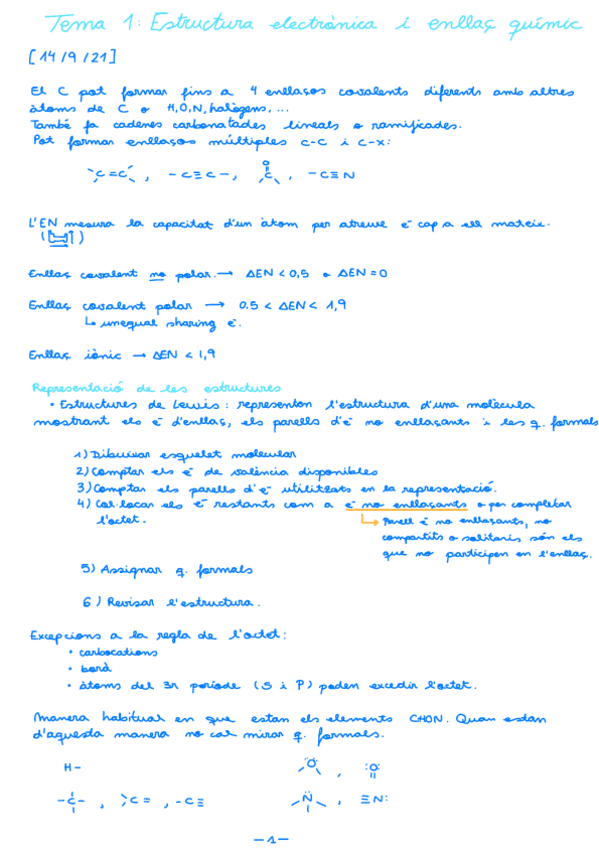 Tema 1: Estructura electrònica i enllaç químic
[14/9/21]
El C pot formar fins a 4 enllaços covalents diferents amb altres
àtoms de C o H,O,N, halògens, ...
També fa cadenes carbonatades lineals o ramificades.
Pot formar enllaços múltiples C-C i C-X:
C=C , -C≡C-, O C , -C≡N
L'EN mesura la capacitat d'un àtom per atreure e- cap a ell mateix.
Enllaç covalent no polar. → ΔEN < 0,5 o ΔEN = 0
Enllaç covalent polar → 0.5 < ΔEN < 1,9
↳ unequal sharing e-.
Enllaç iònic → ΔEN < 1,9
Representació de les estructures
• Estructures de Lewis: representen l'estructura d'una molècula
mostrant els e- d'enllaç, els parells d'e- no enllaçants i les q. formals
1) Dibuixar esquelet molecular
2) Comptar els e- de valència disponibles
3) Comptar els parells d'e- utilitzats en la representació.
4) Col·locar els e- restants com a e- no enllaçants o per completar
l'octet.
↳ Parell e- no enllaçants, no
compartits o solitaris són els
que no participen en l'enllaç.
5) Assignar q. formals
6) Revisar l'estructura.
Excepcions a la regla de l'octet:
• carbocations
• borà
• àtoms del 3r període (S i P) poden excedir l'octet.
Manera habitual en que estan els elements CHON. Quan estan
d'aquesta manera no cal mirar q. formals.
H- O , :O:
-C- , >C= , -C≡ N , ≡N:
-1-